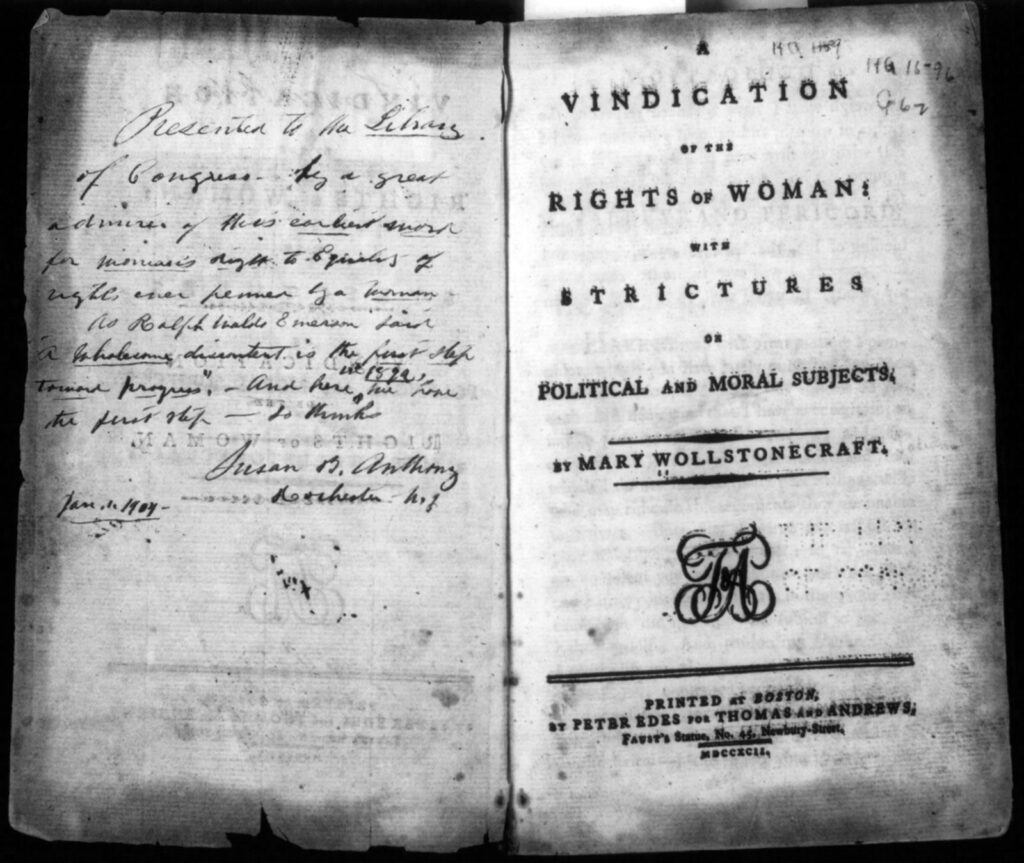 Presented to the Library
of Congress - by a great
admirer of this earliest word
for woman's right to Equality of
rights ever penned by a woman
As Ralph Waldo Emerson said
"A Wholesome discontent is the first step
toward progress". - And here, in 1892, we have
the first step - so thinks
Susan B. Anthony
Rochester - N.Y
Jan. 1. 1904 -
A
VINDICATION
OF THE
RIGHTS OF WOMAN:
WITH
STRICTURES
ON
POLITICAL AND MORAL SUBJECTS.
BY MARY WOLLSTONECRAFT.
PRINTED AT BOSTON,
BY PETER EDES FOR THOMAS AND ANDREWS,
FAUST'S Statue, No. 45, Newbury-Street,
MDCCXCII.
HQ 15-96